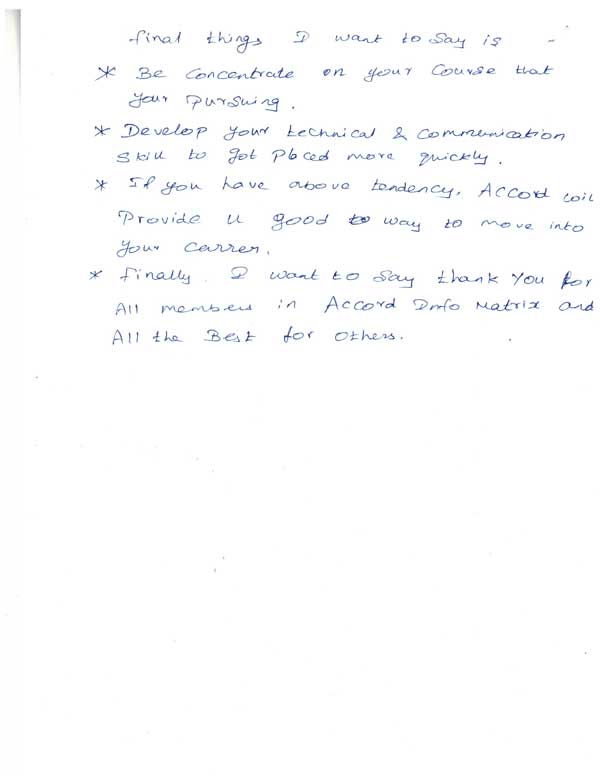 final things I want to say is -
* Be concentrate on your course that
your pursuing.
* Develop your technical & communication
skill to got placed more quickly.
* If you have above tendency, Accord will
Provide u good to way to move into
your carrer.
* finally. I want to say thank you for
All members in Accord Info Matrix and
All the Best for others.